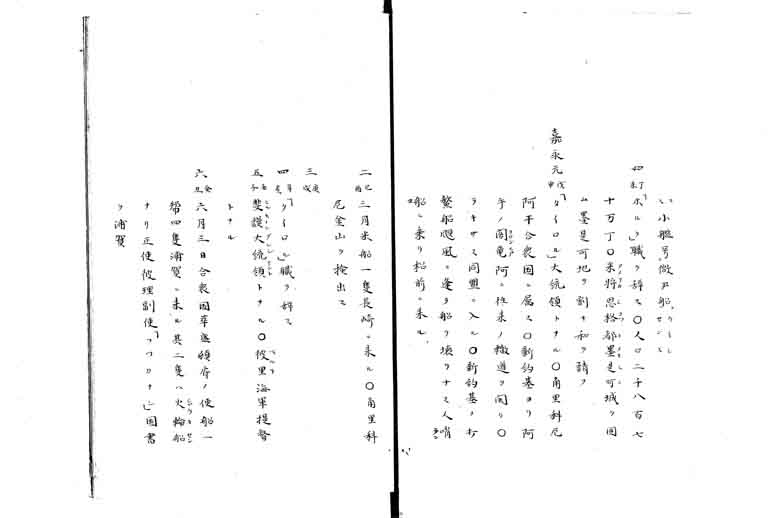 小艦号微爾船
四 丁未 ホル」職ヲ辞ス〇人口二千八百七
十万丁〇米将思格都墨是可城ヲ囲
ム墨是可地ヲ割キ和ヲ請フ
嘉永元 戊申 タイロル」大統領トナル〇角里科尼
阿千合衆国ニ属ス〇新約基ヨリ阿
ノ間電阿ニ往来ノ鉄道ヲ開ク〇
ラキサス同盟ニ入ル〇新約基ノ
鰲船颶風ニ逢ヒ船ヲ壊ラナス人哨
船ニ乗リ松前ニ来ル
二 己酉 三月米船一隻長崎ニ来ル〇角里科
尼金山ヲ検出ス
三 庚戌
四 辛亥 タイロル」職ヲ辞ス
五 壬子 大統領トナル〇彼里海軍提督
トナル
六 癸丑 六月三日合衆国華盛頓府ノ使船一
幇四隻浦賀ニ来ル其二隻ハ火輪船
ナリ正使彼理副使「 」国書
ヲ浦賀